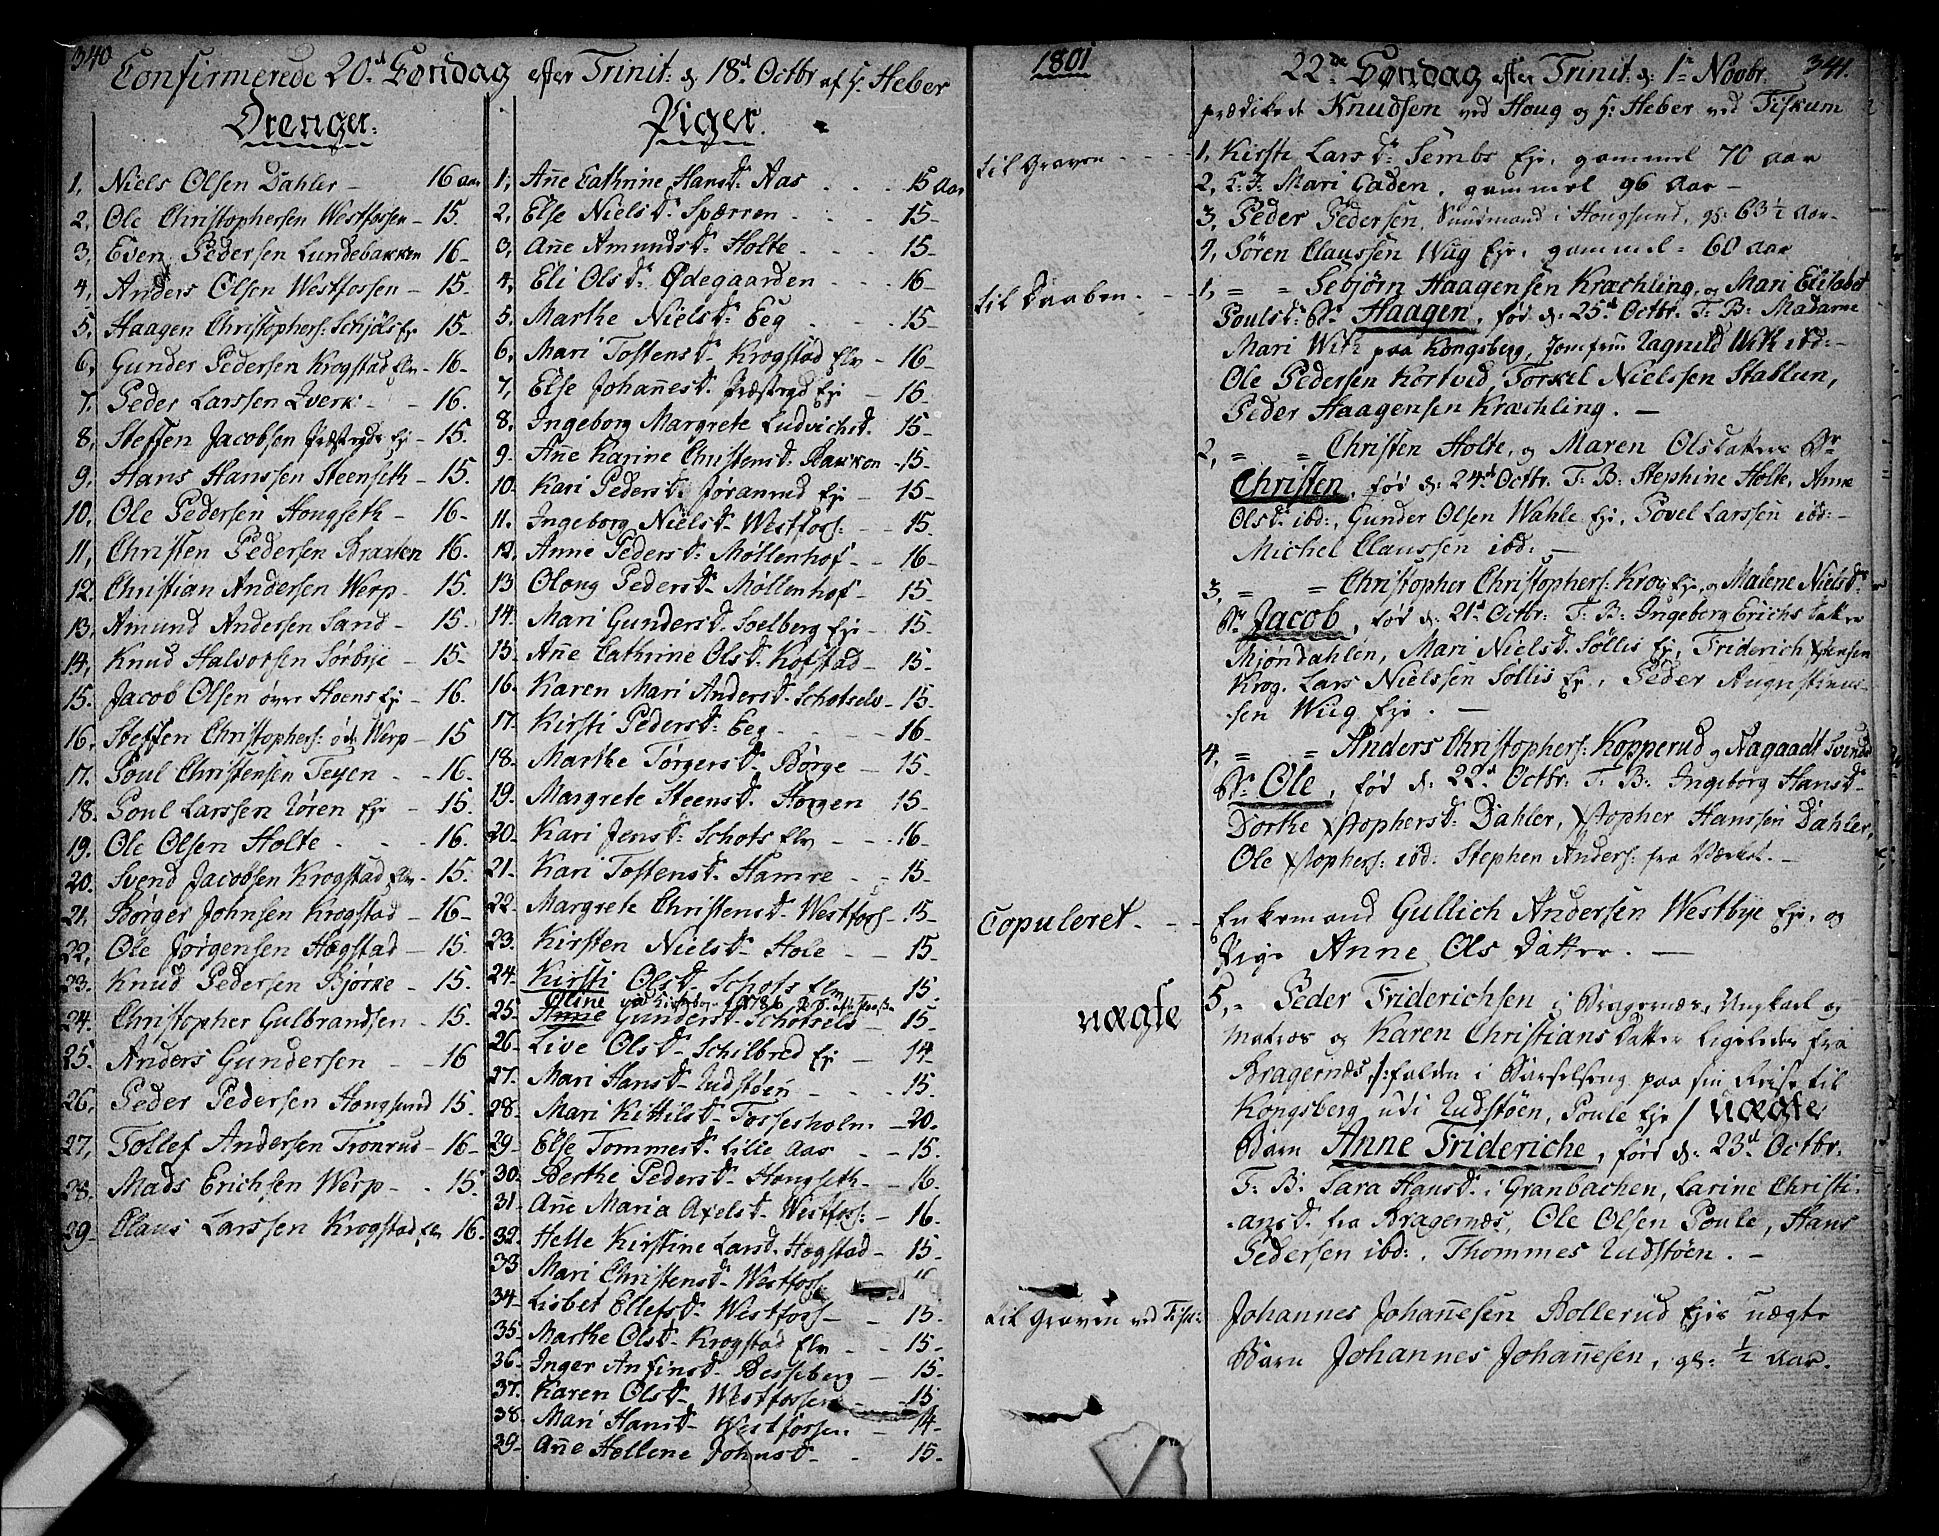 340
Confirmerede 20.d Søndag efter Trinit: d 18.d Octbr af H: Heber
Drenger:
1, Niels Olsen Dahler - 16 aar
2, Ole Christophersen Westfossen - 15.
3, Even Pedersen Lundebakken 16-
4, Anders Olsen Westfossen - 15.
5, Haagen Christophers: Schjøls Ej 15.
6, Gunder Pedersen Krogstad Elv - 16-
7. Peder Larssen Zverk - 16.
8, Steffen Jacobsen Præstryds Ej - 15.
9, Hans Hanssen Steenseth - 15.
10, Ole Pedersen Hougseth - 16-
11, Christen Pedersen Braaten 16.
12. Christian Andersen Werp - 15.
13, Amund Andersen Sand - 15.
14, Knud Halvorsen Sørbye - 15-
15. Jacob Olsen øvre Hoens Ej - 16.
16, Steffen Christophers: øde Werp - 15
17. Poul Christensen Teyen - 16.
18. Poul Larssen Eje - 15.
19. Ole Olsen Holte - 16.
20. Svend Jacobsen Krogstad Elv - 15.
21. Børger Johnsen Krogstad - 16-
22, Ole Jørgensen Hægstad - 15.
23. Knud Pedersen Bjørke - 15.
24. Christopher Gulbrandsen - 15.
25. Anders Gundersen - 16
26, Peder Pedersen Hougsund 15.
27, Tollef Andersen Tronrud - 16-
28. Mads Erichsen Werp - 15.
29. Claus Larssen Krogstad Elv 16.
Piger.
1, Añe Cathrine Hansd: Aas 15 Aar
2, Else Nielsd: Spærren 15-
3, Añe Amundsd: Holte 15-
4, Eli Olsd: Ødegaarden 16-
5. Marthe Nielsd: Eeg 15-
6, Mari Tostensd: Krogstad Elv - 16
7, Else Johañesd: Præstryd Ej 16-
8. Ingeborg Margrete Ludvichsd. 15-
9. Añe Karine Christensd: Bakken - 15-
10. Kari Pedersd: Jøranrud Ej - 15-
11. Ingeborg Nielsd: Westfoss: - 15.
12. Anne Pedersd: Møllenhof - 16-
13 Oloug Pedersd: Møllenhof - 15.
14. Mari Gundersd: Soelberg Ej - 15.
15. Añe Cathrine Olsd: Kofstad - 15.
16. Karen Mari Andersd: Schotselv - 15.
17. Kirsti Pedersd: Eeg 16-
18. Marthe Torgersd: Børge - 15.
19. Margrete Steensd: Horgen 15-
20. Kari Jensd: Schots Elv - 16-
21. Kari Tostensd: Hamre - 15-
22. Margrete Christensd: Westfoss - 15-
23. Kirsten Nielsd: Hole - 15-
24. Kirsti Olsd: Schots Elv 15.
Oline
25. Anne Gundersd: Schotselv 15-
26- Live Olsd: Schilbred Ej - 14-
27. Mari Hansd: Udstøen 15.
28. Mari Kittilsd: Fossesholm - 20.
29- Else Tommesd: Lille Aas - 15.
30. Berthe Pedersd: Hougseth - 16.
31. Añe Maria Axelsd: Westfoss: - 16.
32. Helle Kirstine Larsd: Hægstad - 15.
33 Mari Christensd: Westfoss
34- Lisbet Ellefsd: Westfoss - 15.
35. Marthe Olsd: Krogstad Elv - 15.
36- Inger Anfinsd: Besseberg - 15.
37. Karen Olsd: Westfossen - 15
38- Mari Hansd: Westfossen - 14-
39- Añe Hellene Johnsd: - 15.
1801
til Graven
til Daaben
Copuleret
uægte
til Graven ved Fisk:
341.
22.de Søndag efter Trinit: d: 1.e Novbr.
prædikede Knudsen ved Houg og H: Heber ved Fiskum
1, Kirsti Larsd: Sembs Eje, gammel 70 aar
2, Mari Gaden, gammel 96 Aar -
3, Peder Pedersen, Huusmand i Hougsund, gl: 63 ½ Aar-
4, Søren Claussen Wug Eje, gammel = 60 aar
1, = = Sebjørn Haagensen Kræchling, og Mari Elisabet
Poulsd: Br Haagen, født d: 25.d Octbr. F: B: Madame
Mari Witz paa Kongsberg, Jomfrue Ragnild Witz ibd:-
Ole Pedersen Kortved, Torkel Nielssen Stablun,
Peder Haagensen Kræchling. -
2, = = Christen Holte, og Maren Olsdatters Br
Christen, født d: 24.d Octbr: F: B: Stephine Holte, Anne
Olsd: ibd:, Gunder Olsen Wahle Eje, Povel Larssen ibd:-
Michel Claussen ibd: -
3, = = Christopher Christophers: Krog Eje, og Malene Nielsd:
Br Jacob, født d: 21.d Octbr: F: B: Ingeborg Erichs Datter
Mjøndahlen, Mari Nielsd: Søllis Ej, Friderich Jensen
Krog. Lars Nielssen Søllis Ej, Peder Augustinus-
sen Wiig Eje. -
4, = = Anders Christophers: Kopperud og Aagaadt Svensd
Br Ole, født d: 22.d Octbr: F: B: Ingeborg Hansd:
Dorthe Xstophersd: Dahler, Xstopher Hanssen Dahler,
Ole Xstophers: ibd: Stephen Anders: fra Værket. -
Enkemand Gullich Andersen Westbye Eje, og
Pige Anne Ols Datter. -
5, - Peder Friderichsen i Bragernæs, Ungkarl og
Matros og Karen Christians Datter ligeledes fra
Bragernæs, /: falden i Barselseng paa sin Reise til
Kongsberg udi Udstøen, Poule Eje / uægte
Barn Anne Frideriche, født d: 23.d Octbr.
F: B: Sara Hansd: i Granbachen, Larine Christi-
ansd: fra Bragernæs, Ole Olsen Poule, Hans
Pedersen ibd:, Thommes Udstøen. -
Johannes Johañesen Bollerud Ejes uægte
Barn Johannes Johañesen, gl: ½ Aar.